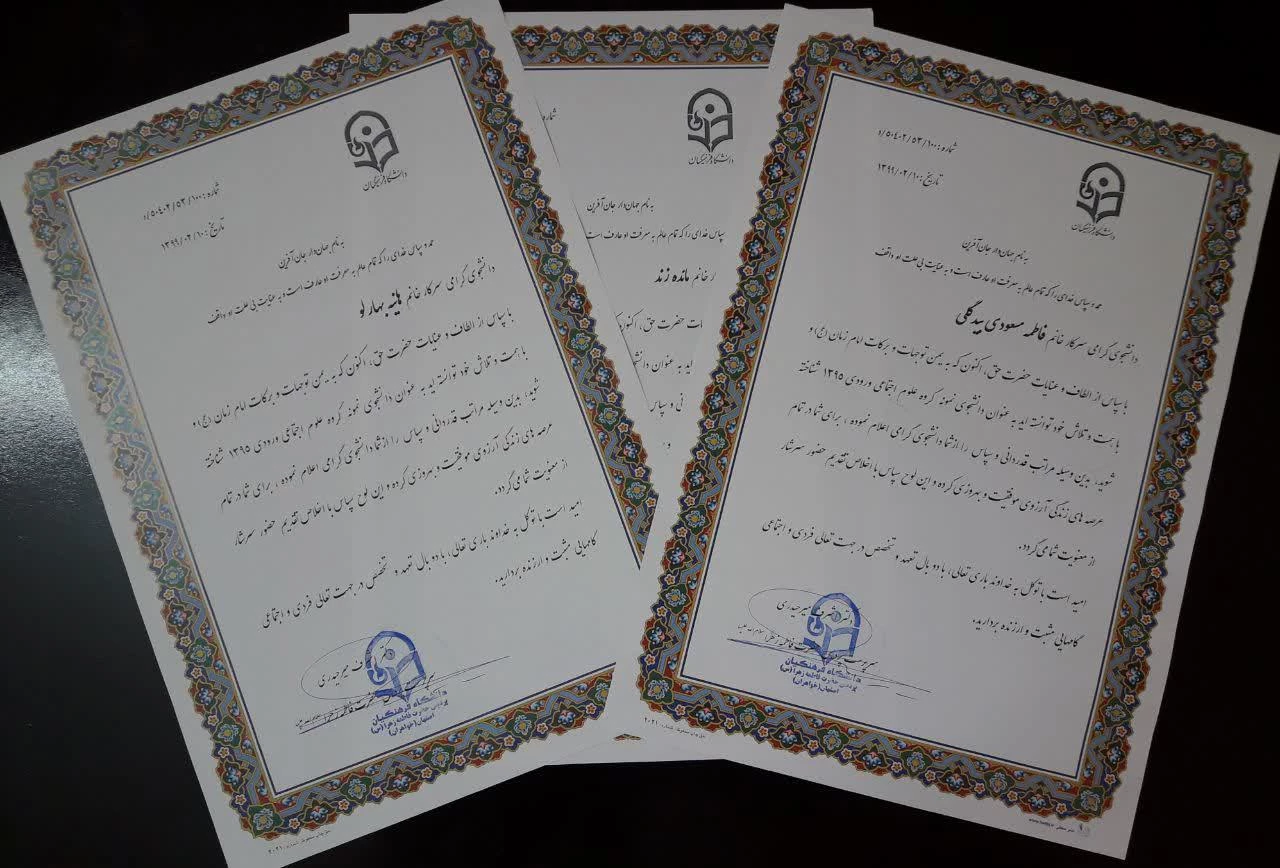 دانشگاه فرهنگیان
شماره: ۵۰۴۰۲/۵۳/۱۰۰/د
تاریخ: ۱۳۹۹/۰۲/۱۰
به نام جهان دار جان آفرین
حمد و سپاس خدای را که تمام عالم به معرفت او عارف است و به عنایت بی علت او واقف
دانشجوی گرامی سرکار خانم فاطمه مسعودی بیدگلی
با سپاس از الطاف و عنایات حضرت حق، اکنون که به یمن توجهات و برکات امام زمان (عج) و
با همت و تلاش خود توانسته اید به عنوان دانشجوی نمونه گروه علوم اجتماعی ورودی ۱۳۹۵ شناخته
شوید، بدین وسیله مراتب قدردانی و سپاس را از شما دانشجوی گرامی اعلام نموده، برای شما در تمام
عرصه های زندگی آرزوی موفقیت و بهروزی کرده و این لوح سپاس با اخلاص تقدیم حضور سرشار
از معنویت شما می گردد.
امید است با توکل به خداوند باری تعالی، با دو بال تعهد و تخصص در جهت تعالی فردی و اجتماعی
گامهایی مثبت و ارزنده بردارید.
میرحیدری
دانشگاه فرهنگیان
پردیس حضرت فاطمه زهرا (س)
اصفهان (خواهران)
دانشگاه فرهنگیان
شماره
به نام جهان دار جان آفرین
سپاس خدای را که تمام عالم به معرفت او عارف است
خانم مائده زند
حضرت حق، اکنون
اید به عنوان
و سپاس
دانشگاه فرهنگیان
شماره: ۵۰۴۰۲/۵۳/۱۰۰/د
تاریخ: ۱۳۹۹/۰۲/۱۰
به نام جهان دار جان آفرین
حمد و سپاس خدای را که تمام عالم به معرفت او عارف است و به عنایت بی علت او واقف
دانشجوی گرامی سرکار خانم هانیه بهارلو
با سپاس از الطاف و عنایات حضرت حق، اکنون که به یمن توجهات و برکات امام زمان (عج) و
با همت و تلاش خود توانسته اید به عنوان دانشجوی نمونه گروه علوم اجتماعی ورودی ۱۳۹۵ شناخته
شوید، بدین وسیله مراتب قدردانی و سپاس را از شما دانشجوی گرامی اعلام نموده، برای شما در تمام
عرصه های زندگی آرزوی موفقیت و بهروزی کرده و این لوح سپاس با اخلاص تقدیم حضور سرشار
از معنویت شما می گردد.
امید است با توکل به خداوند باری تعالی، با دو بال تعهد و تخصص در جهت تعالی فردی و اجتماعی
گامهایی مثبت و ارزنده بردارید.
میرحیدری
دانشگاه فرهنگیان
پردیس حضرت فاطمه زهرا (س)
اصفهان (خواهران)